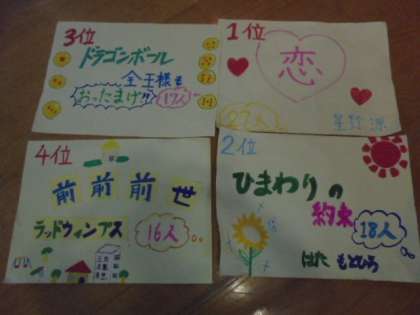 3位
ドラゴンボール
全王様も
おったまげ!!
17人
1位
恋
27人
星野源
4位
前前前世
ラッドウィンプス
16人
2位
ひまわりの
約束
18人
はたもとひろ